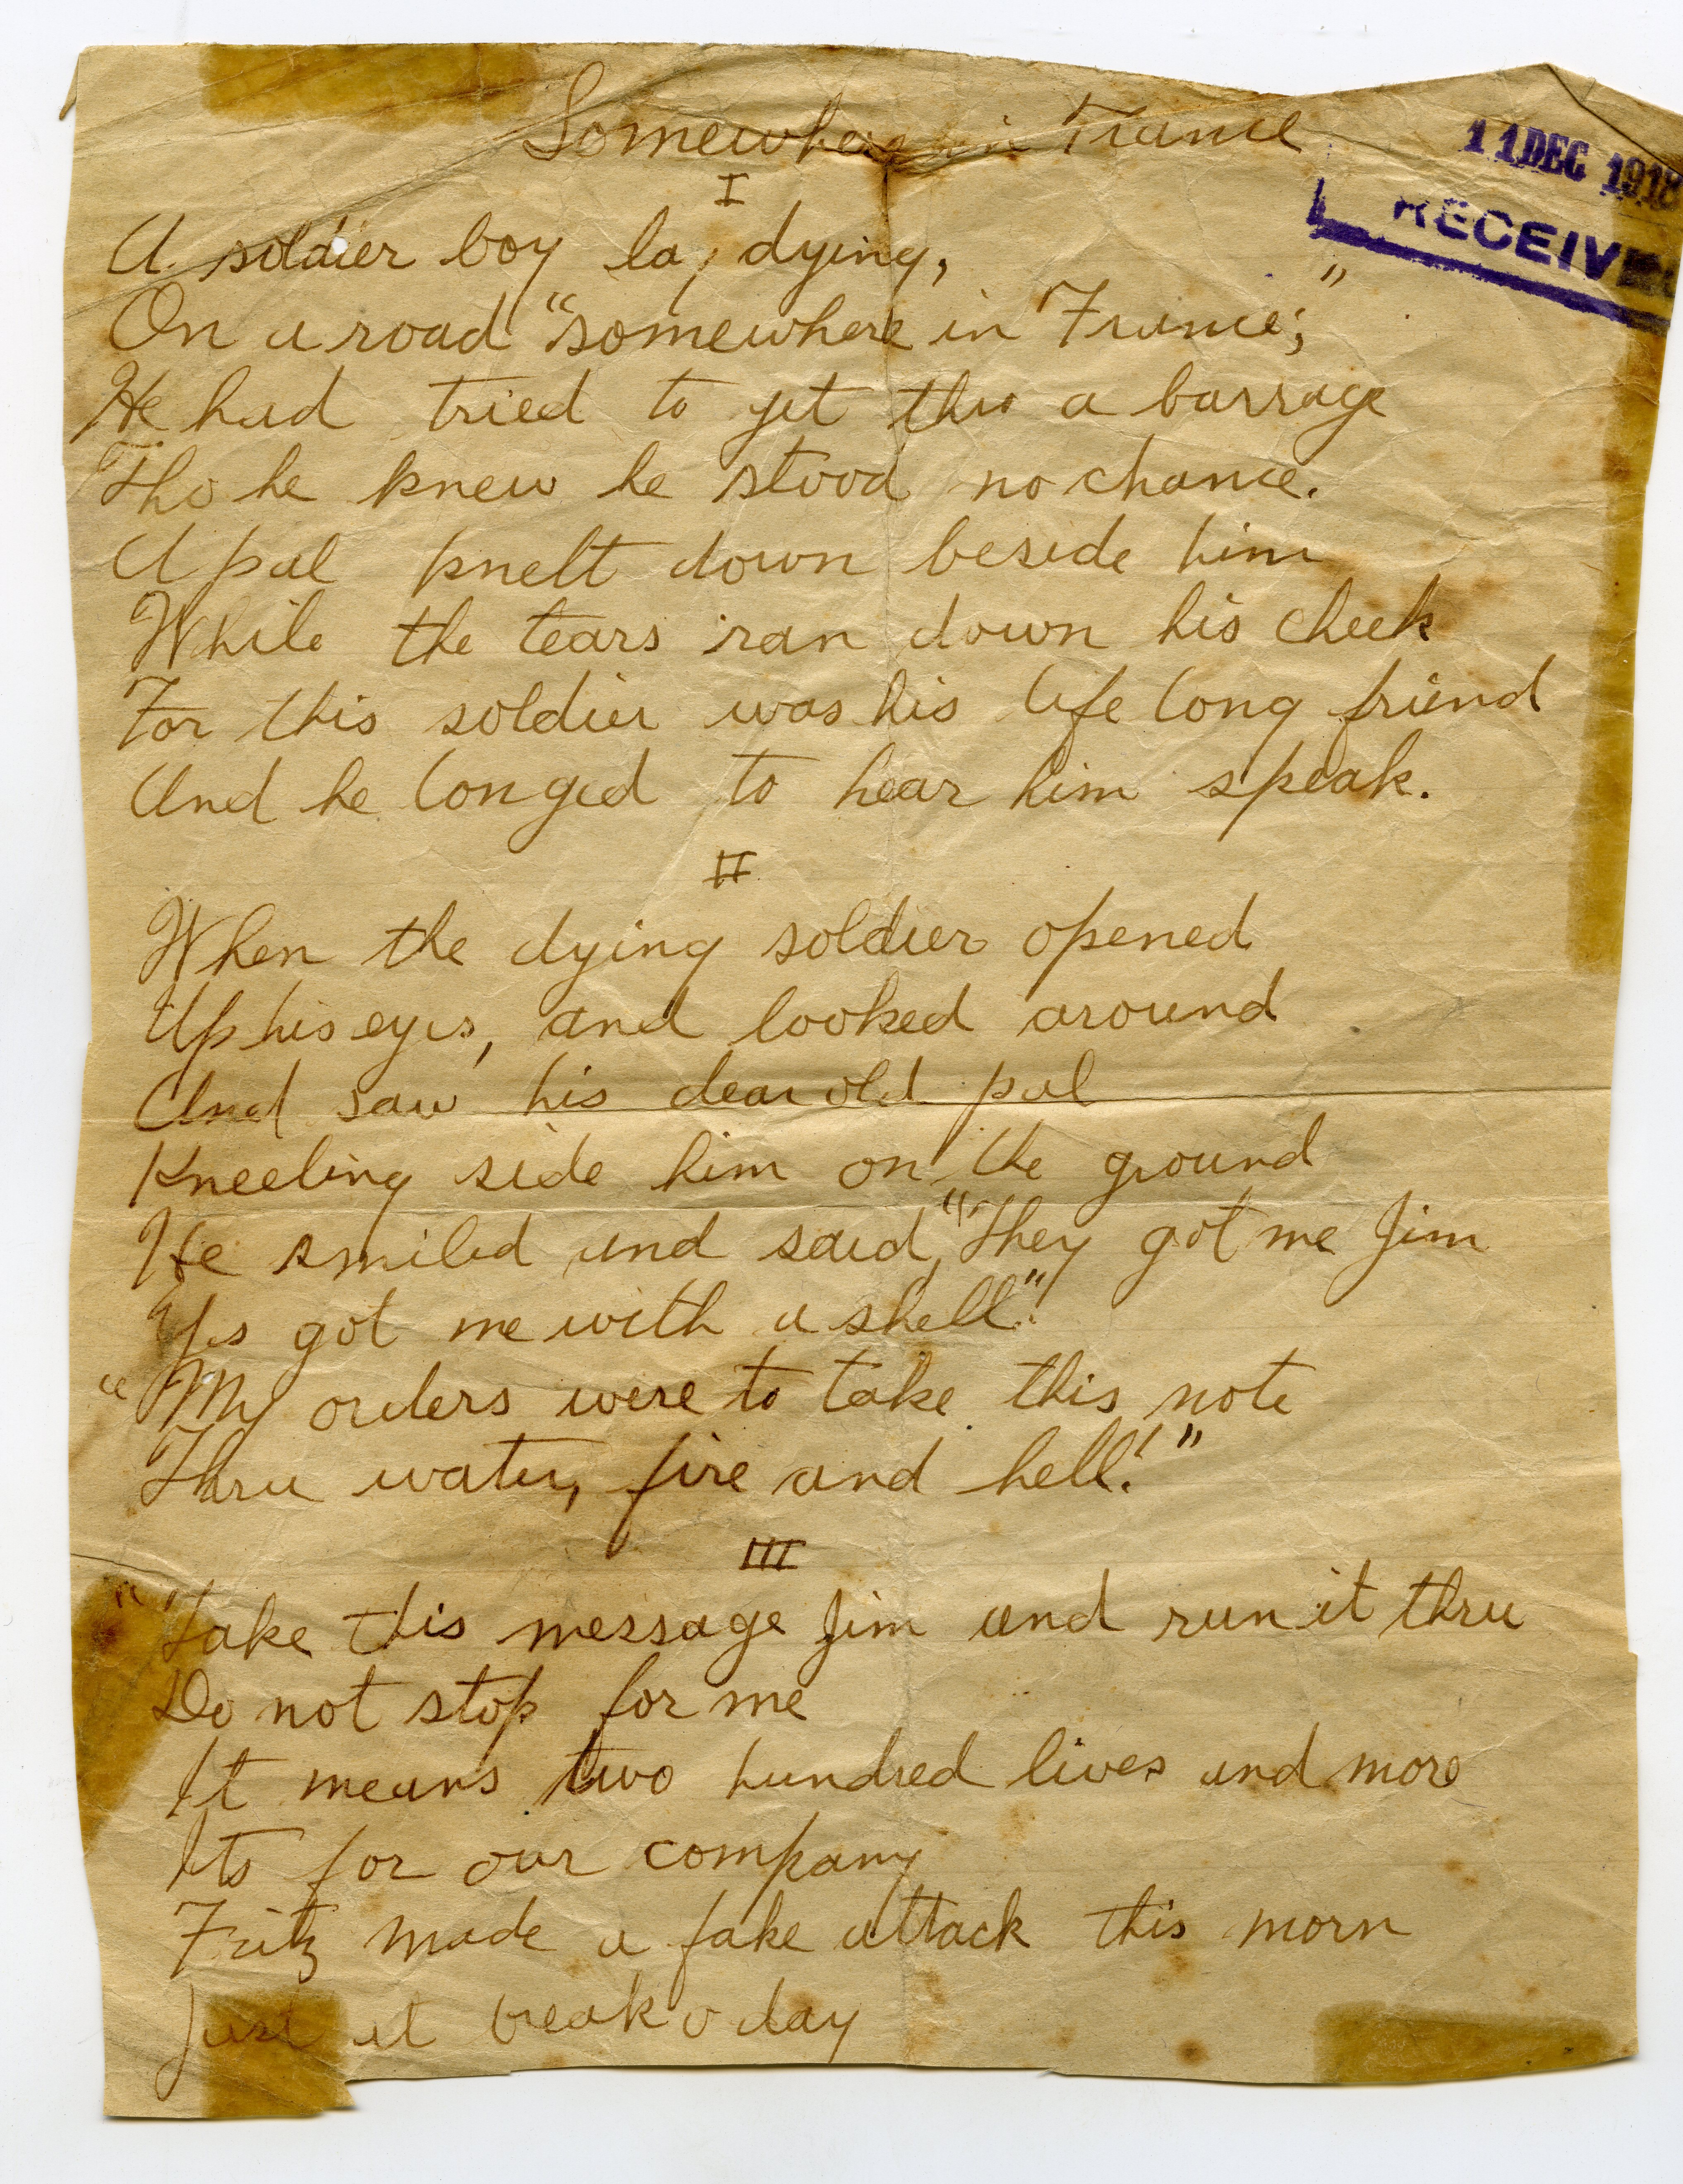 Somewhere in France
11 DEC 1918
RECEIVED
I
A soldier boy lay dying,
On a road "somewhere in France;"
He had tried to get thro a barrage
Tho he knew he stood no chance.
A pal knelt down beside him
While the tears ran down his cheek
For this soldier was his life long friend
And he longed to hear him speak.
II
When the dying soldier opened
Up his eyes, and looked around
And saw his dear old pal
Kneeling side him on the ground
He smiled and said, "They got me Jim
Yes got me with a shell".
"My orders were to take this note
Thru water, fire and hell!"
III
"Take this message Jim and run it thru
Do not stop for me
It means two hundred lives and more
Its for our company
Fritz made a fake attack this morn
Just at break o day